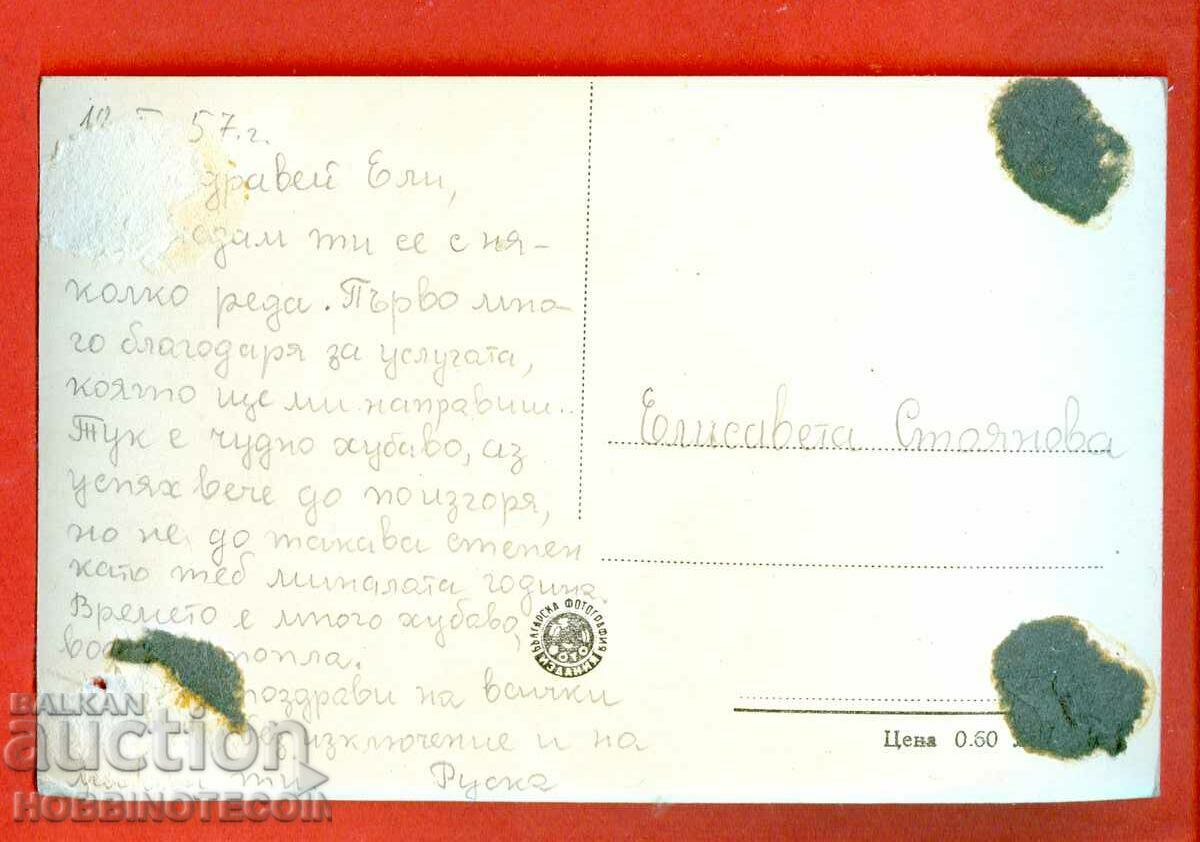 57.г.
Ели,
ти се с ня-
колко реда. Първо мно-
го благодаря за услугата,
която ще ми направиш..
Тук е чудно хубаво, аз
успях вече до поизгоря,
но не до такава степен
като теб миналата година.
Времето е много хубаво,
топла.
поздрави на всички
без изключение и на
ти Руска
Елисавета Стоянова
БЪЛГАРСКА ФОТОГРАФИЯ
ФОТО
ИЗДАНИЯ
Цена 0.60
BALKAN
auction
HOBBINOTECOIN